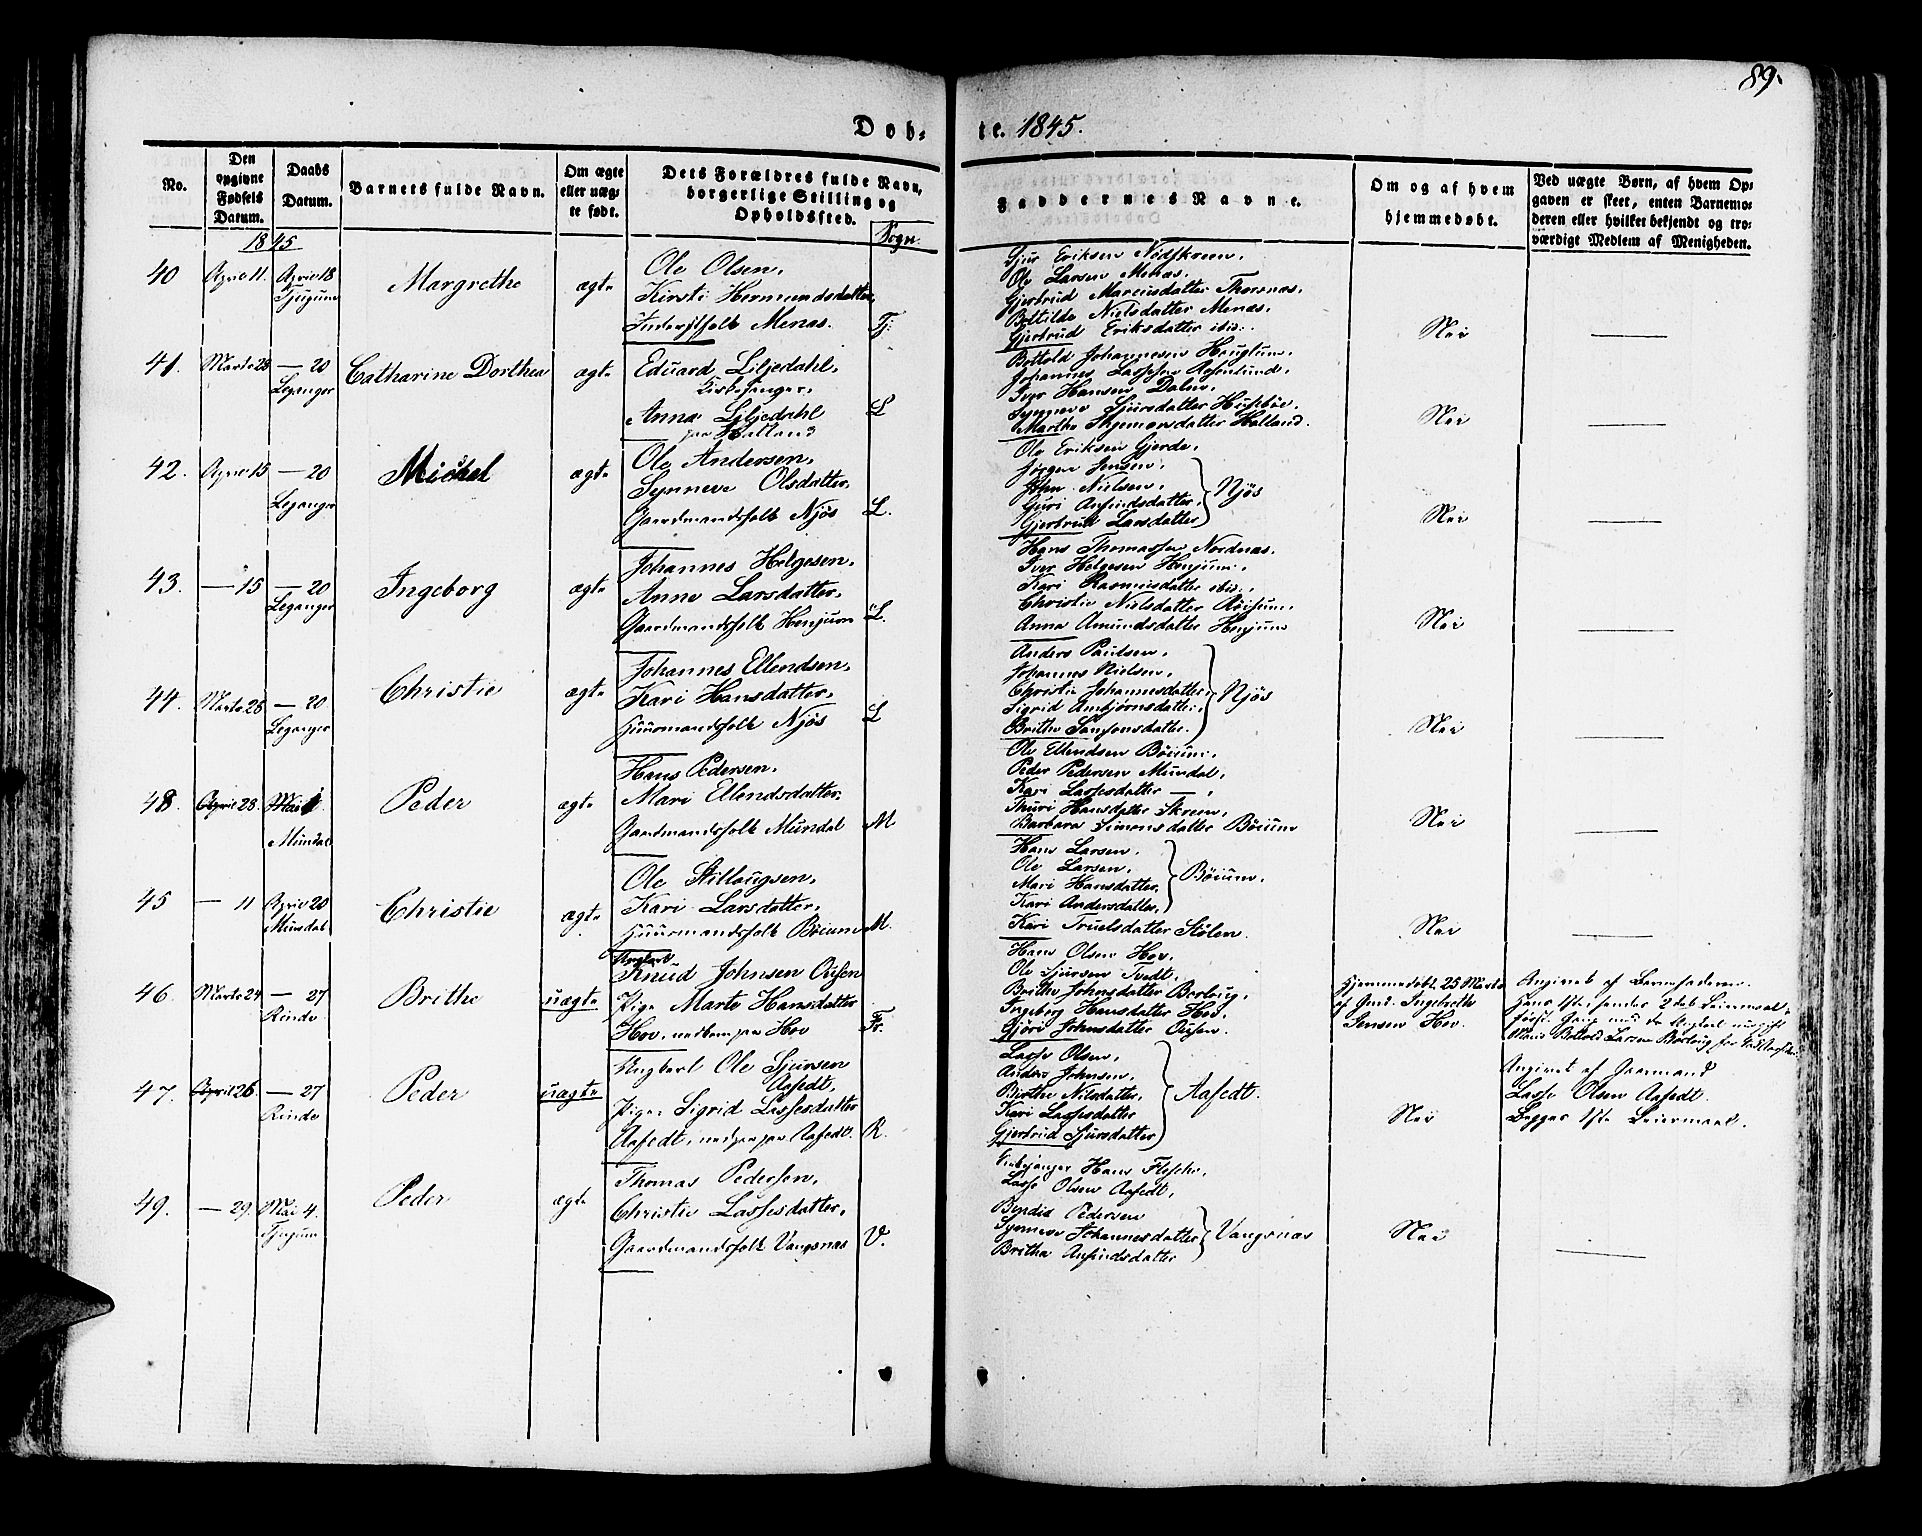 89.
Døb-te. 1845.
No.
Den opgivne Fødsels Datum.
Daabs Datum.
Barnets fulde Navn.
Om ægte eller uægte født.
Dets Forældres fulde Navn, borgerlige Stilling og Opholdssted.
Sogn.
Faddernes Navne.
Om og af hvem hjemmedøbt.
Ved uægte Børn, af hvem Opgaven er skeet, enten Barnemoderen eller hvilket bekjendt og troværdigt Medlem af Menigheden.
1845
40 April 11. April 18 Tjugum Margrethe ægte
Ole Olsen,
Kirsti Hermundsdatter,
Inderstfolk Menæs. Tj:
Gjur Eriksen Nødskreen.
Ole Larsen Menæs.
Gjertrud Marcusdatter Thorsnæs.
Boltilde Nielsdatter Menæs.
Gjertrud Eriksdatter ibid:.
Nei
41. Marts 28 — 20 Leganger Catharine Dorthea ægte
Eduard Liljedahl,
Kirkesanger,
Anna Liljedahl
paa Hatland L
Bottold Johannesen Henglum.
Johannes Lassesen
Iver Hansen Dalen.
Synneve Sjursdatter Husebøe.
Marthe Ingemarsdatter Holland.
Nei
42. April 15 — 20 Leganger Michel ægte
Ole Andersen,
Synneve Olsdatter,
Gaardmandsfolk Njøs L.
Ole Eriksen Gjerde.
Jørgen Jensen,
John Nielsen,
Guri Anfindsdatter,
Gjertrud Larsdatter } Njøs
Nei
43. — 15 — 20 Leganger Ingeborg ægte
Johannes Helgesen,
Anne Larsdatter,
Gaardmandsfolk Henjum L.
Hans Thomassen Nordnæs.
Iver Helgesen Henjum.
Kari Rasmusdatter ibid:.
Christie Nielsdatter Røisum.
Anna Amundsdatter Henjum
Nei
44. Marts 26 — 20 Leganger Christie ægte
Johannes Ellendsen,
Kari Hansdatter,
Huusmandsfolk Njøs L
Anders Paulsen,
Johannes Nielsen,
Christie Johannesdatter,
Sigrid Ambjørnsdatter,
Brithe Samsonsdatter. } Njøs
Nei
48. April 28. Mai 1 Mundal Peder ægte
Hans Pedersen,
Mari Ellendsdatter,
Gaardmandsfolk Mundal M
Ole Ellendsen Bøium.
Peder Pedersen Mundal,
Kari Lassesdatter — ,
Thuri Hansdatter Skreen,
Barbara Simonsdatter Bøium
Nei
45 — 11 April 20 Mundal Christie ægte.
Ole Stillaugsen,
Kari Larsdatter,
Huusmandsfolk Bøium M.
Hans Larsen,
Ole Larsen,
Mari Hansdatter,
Kari Andersdatter, } Bøium.
Kari Truelsdatter Stølen.
Nei
46. Marts 24 — 27 Rinde Brithe uægte
Ungkarl
Knud Johnsen Ousen
Pige Marte Hansdatter
Hov, nedkom paa Hov Fr.
Hans Olsen Hov.
Ole Sjursen Tvedt,
Brithe Johnsdatter Borlaug,
Ingeborg Hansdatter Hov,
Sjøri Johnsdatter Ousen.
Hjemmedøbt 25 Marts
af Gmd. Ingebrikt
Jensen Hov.
Angivet af Barnefaderen.
Hans 1ste, hendes 2det Leiermaal,
47. April 26. — 27 Rinde Peder uægte
Ungkarl Ole Sjursen
Aafedt,
Pige Sigrid Lassesdatter
Aafedt, nedkom paa Aafedt. R.
Lasse Olsen,
Anders Johnsen,
Birthe Nilsdatter,
Kari Lassesdatter
Gjertrud Sjursdatter } Aafedt.
Nei
Angivet af Gaarmand
Lasse Olsen Aafedt.
Begges 1ste Leiermaal.
49. — 29. Mai 4. Tjugum Peder ægte
Thomas Pedersen,
Christie Lassesdatter,
Gaardmandsfolk Vangsnæs V.
Kirkesanger Hans Flesche,
Lasse Olsen Aafedt,
Bendix Pedersen
Synneve Johannesdatter
Brithe Anfindsdatter } Vangsnæs
Nei